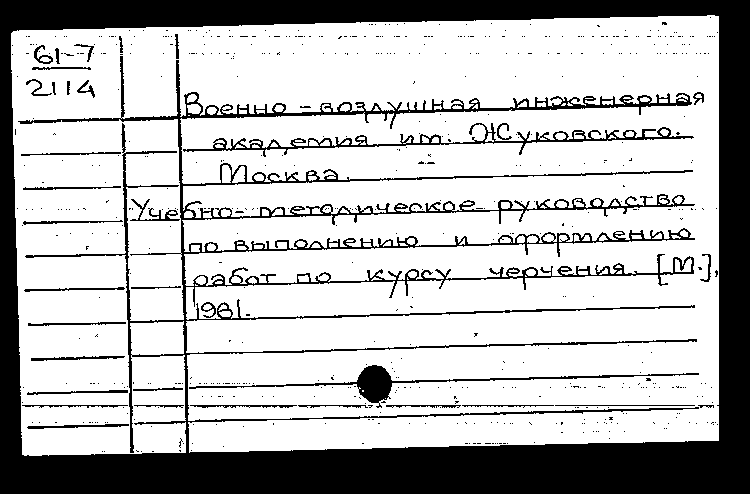 61-7
2114
Военно-воздушная инженерная
академия им. Жуковского.
Москва.
Учебно-методическое руководство
по выполнению и оформлению
работ по курсу черчения. [М.],
1961.